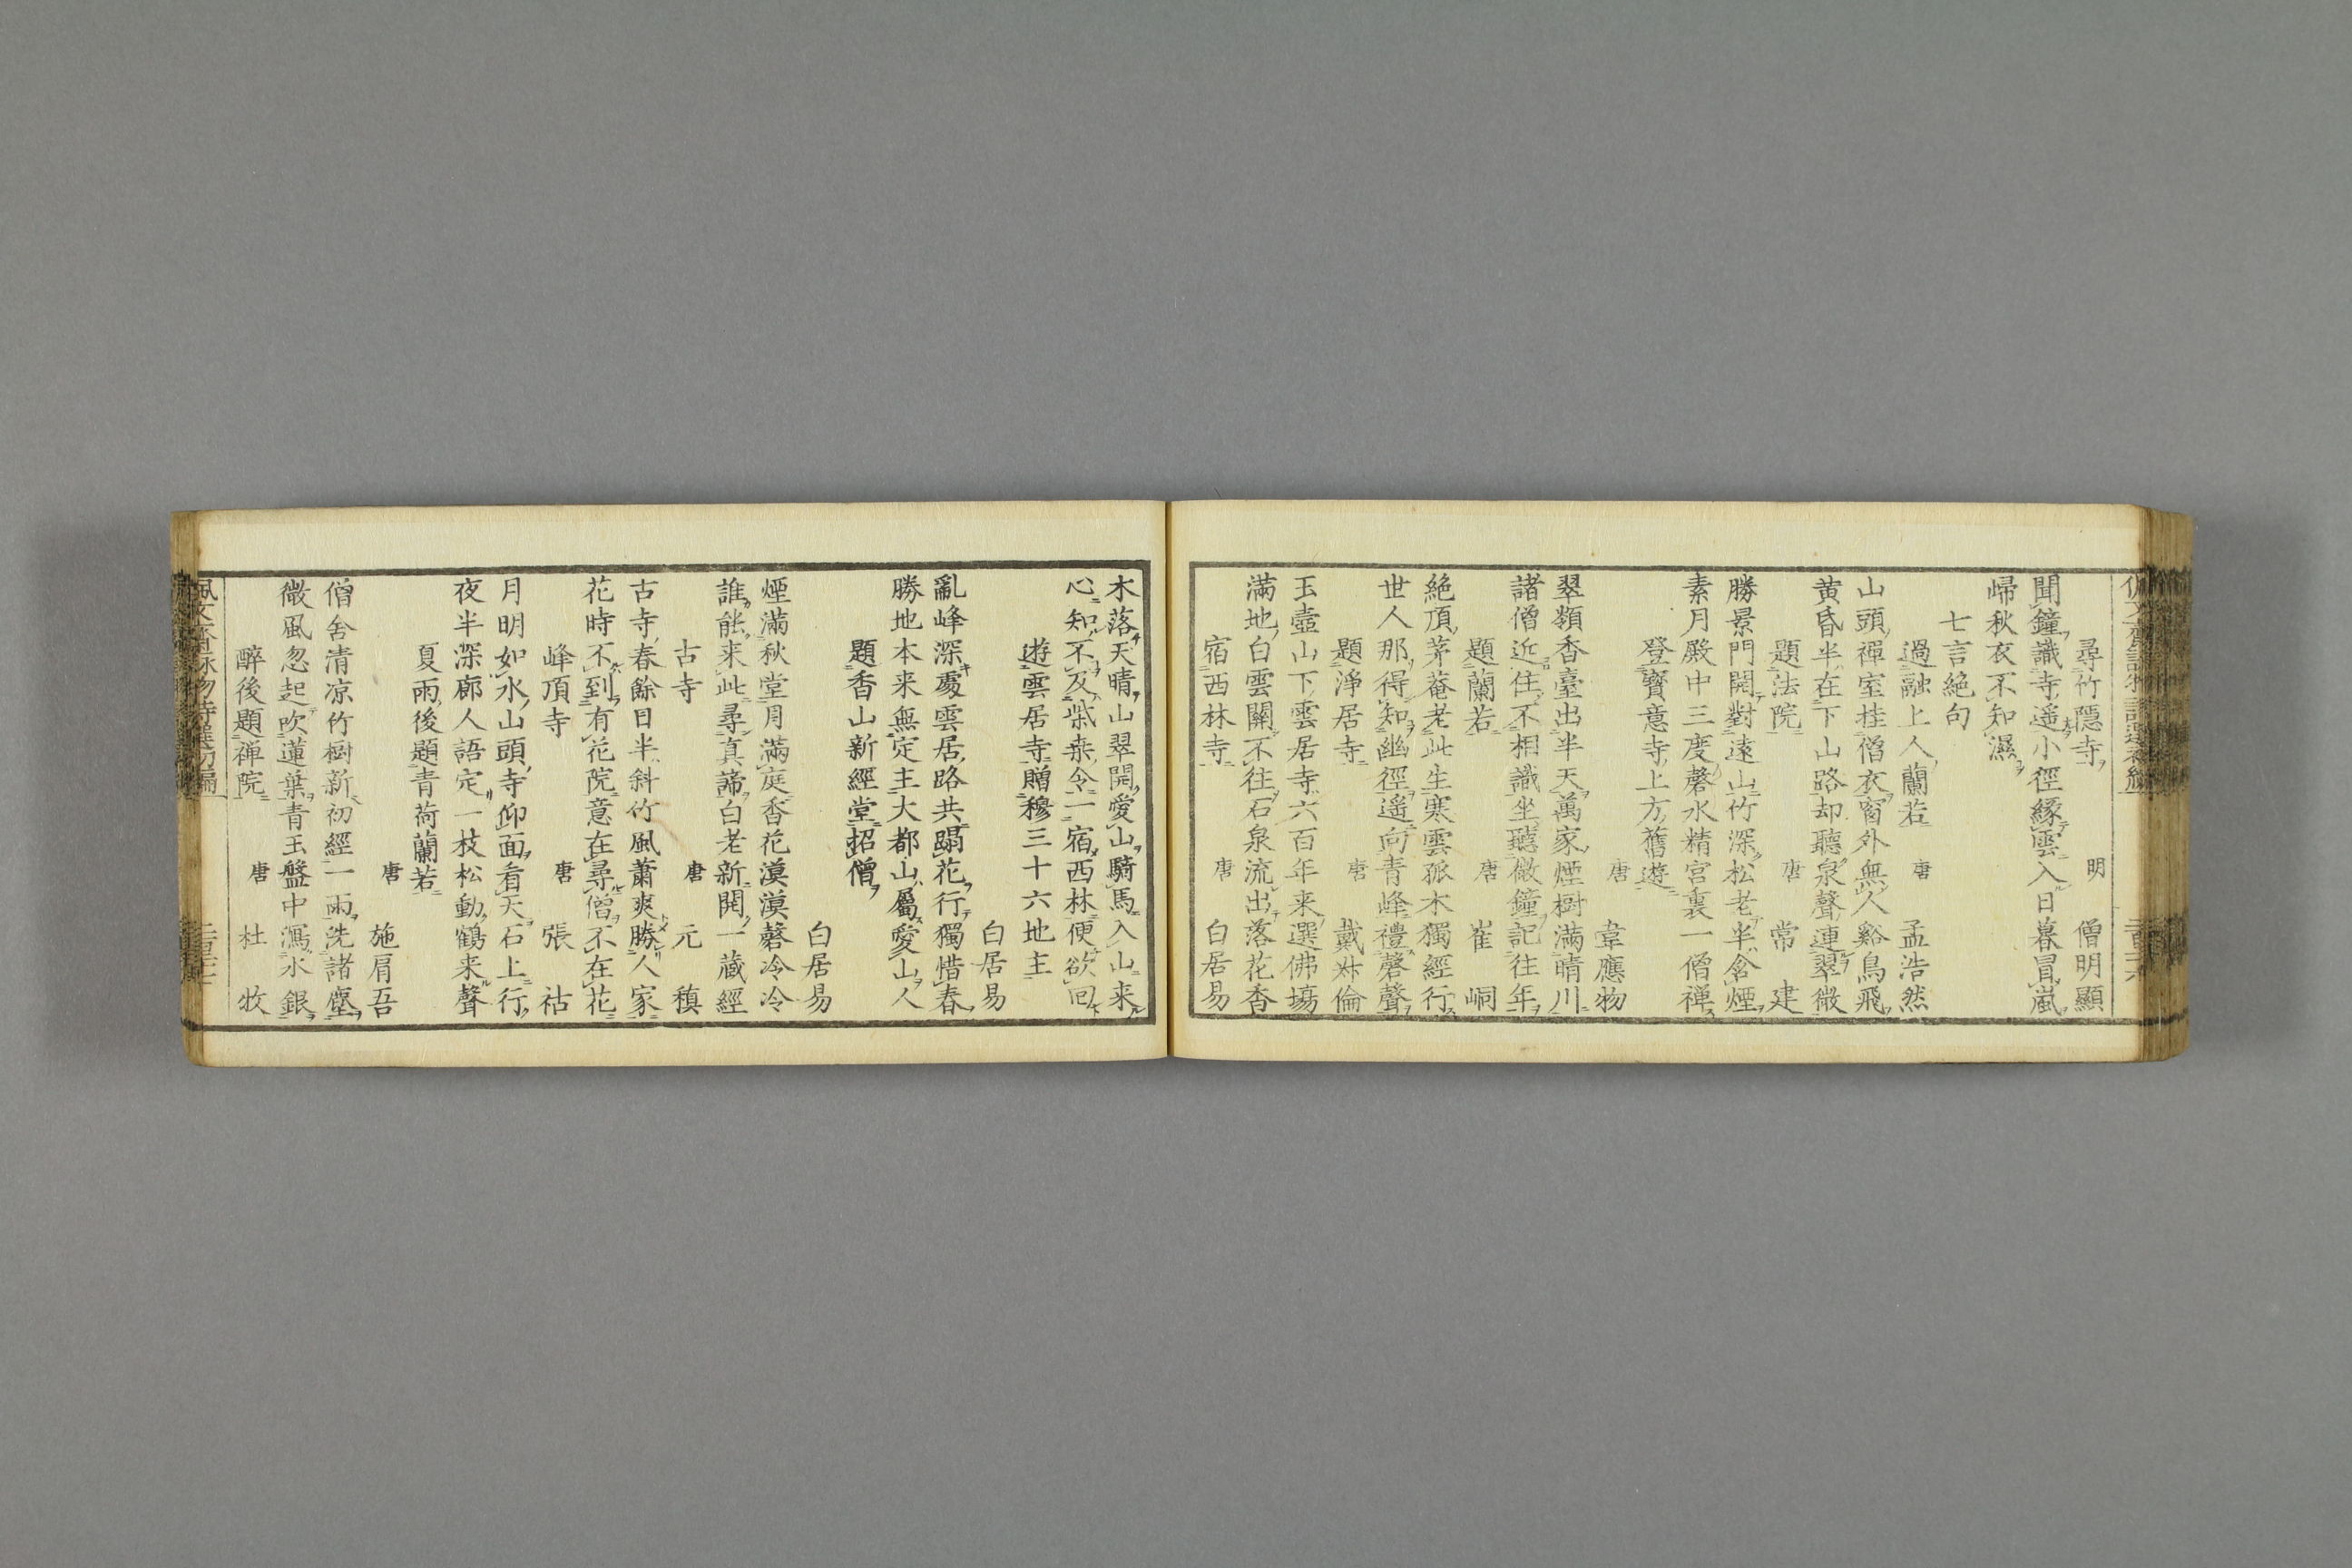 尋竹隱寺 明 僧明顯
聞鐘識寺遥小徑緣雲入日暮冒嵐
歸秋衣不知濕
七言絶句
過融上人蘭若 唐 孟浩然
山頭禪室挂僧衣窗外無人谿鳥飛
黄昏半在下山路却聽泉聲連翠微
題法院 唐 常建
勝景門開對遠山竹深松老半含煙
素月殿中三度磬水精宮裏一僧禅
登寶意寺上方舊遊 唐 韋應物
翠嶺香臺出半天萬家煙樹滿晴川
諸僧近住不相識坐聽微鐘記往年
題蘭若 唐 崔峒
絶頂茅菴老此生寒雲孤木獨經行
世人那得知幽徑遥向青峰禮磬聲
題淨居寺 唐 戴叔倫
玉壺山下雲居寺六百年来選佛場
滿地白雲關不住石泉流出落花香
宿西林寺 唐 白居易
木落天晴山翠開愛山騎馬入山来
心知不及柴桑令一宿西林便欲回
遊雲居寺贈穆三十六地主
白居易
亂峰深處雲居路共蹋花行獨惜春
勝地本来無定主大都山屬愛山人
題香山新經堂招僧
白居易
煙滿秋堂月滿庭香花漠漠磬泠泠
誰能来此尋真諦白老新開一藏經
古寺 唐 元稹
古寺春餘日半斜竹風蕭爽勝人家
花時不到有花院意在尋僧不在花
峰頂寺 唐 張祜
月明如水山頭寺仰面看天石上行
夜半深廊人語定一枝松動鶴来聲
夏雨後題青荷蘭若
唐 施肩吾
僧舍清凉竹樹新初經一雨洗諸塵
微風忽起吹蓮葉青玉盤中瀉水銀
醉後題禅院 唐 杜牧
佩文齋詠物詩選初編